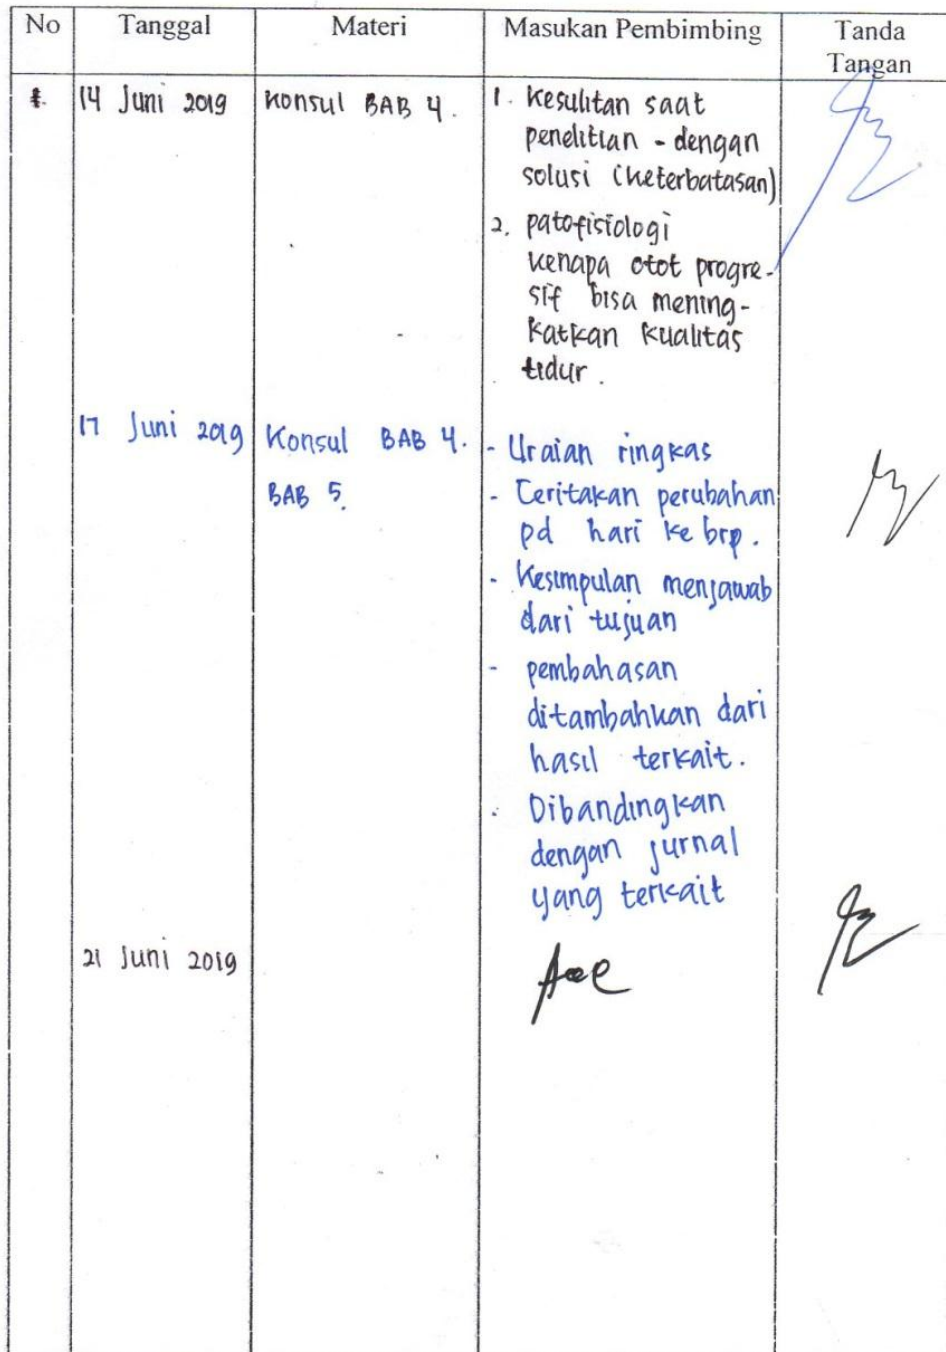 No Tanggal Materi Masukan Pembimbing Tanda
Tangan
14 Juni 2019 Konsul BAB 4. 1. Kesulitan saat
penelitian - dengan
solusi (keterbatasan)
2. patofisiologi
kenapa otot progre-
sif bisa mening-
katkan kualitas
tidur.
17 Juni 2019 Konsul BAB 4. - Uraian ringkas
BAB 5. - Ceritakan perubahan
pd hari ke brp.
- Kesimpulan menjawab
dari tujuan
- pembahasan
ditambahkan dari
hasil terkait.
- Dibandingkan
dengan jurnal
yang terkait
21 Juni 2019